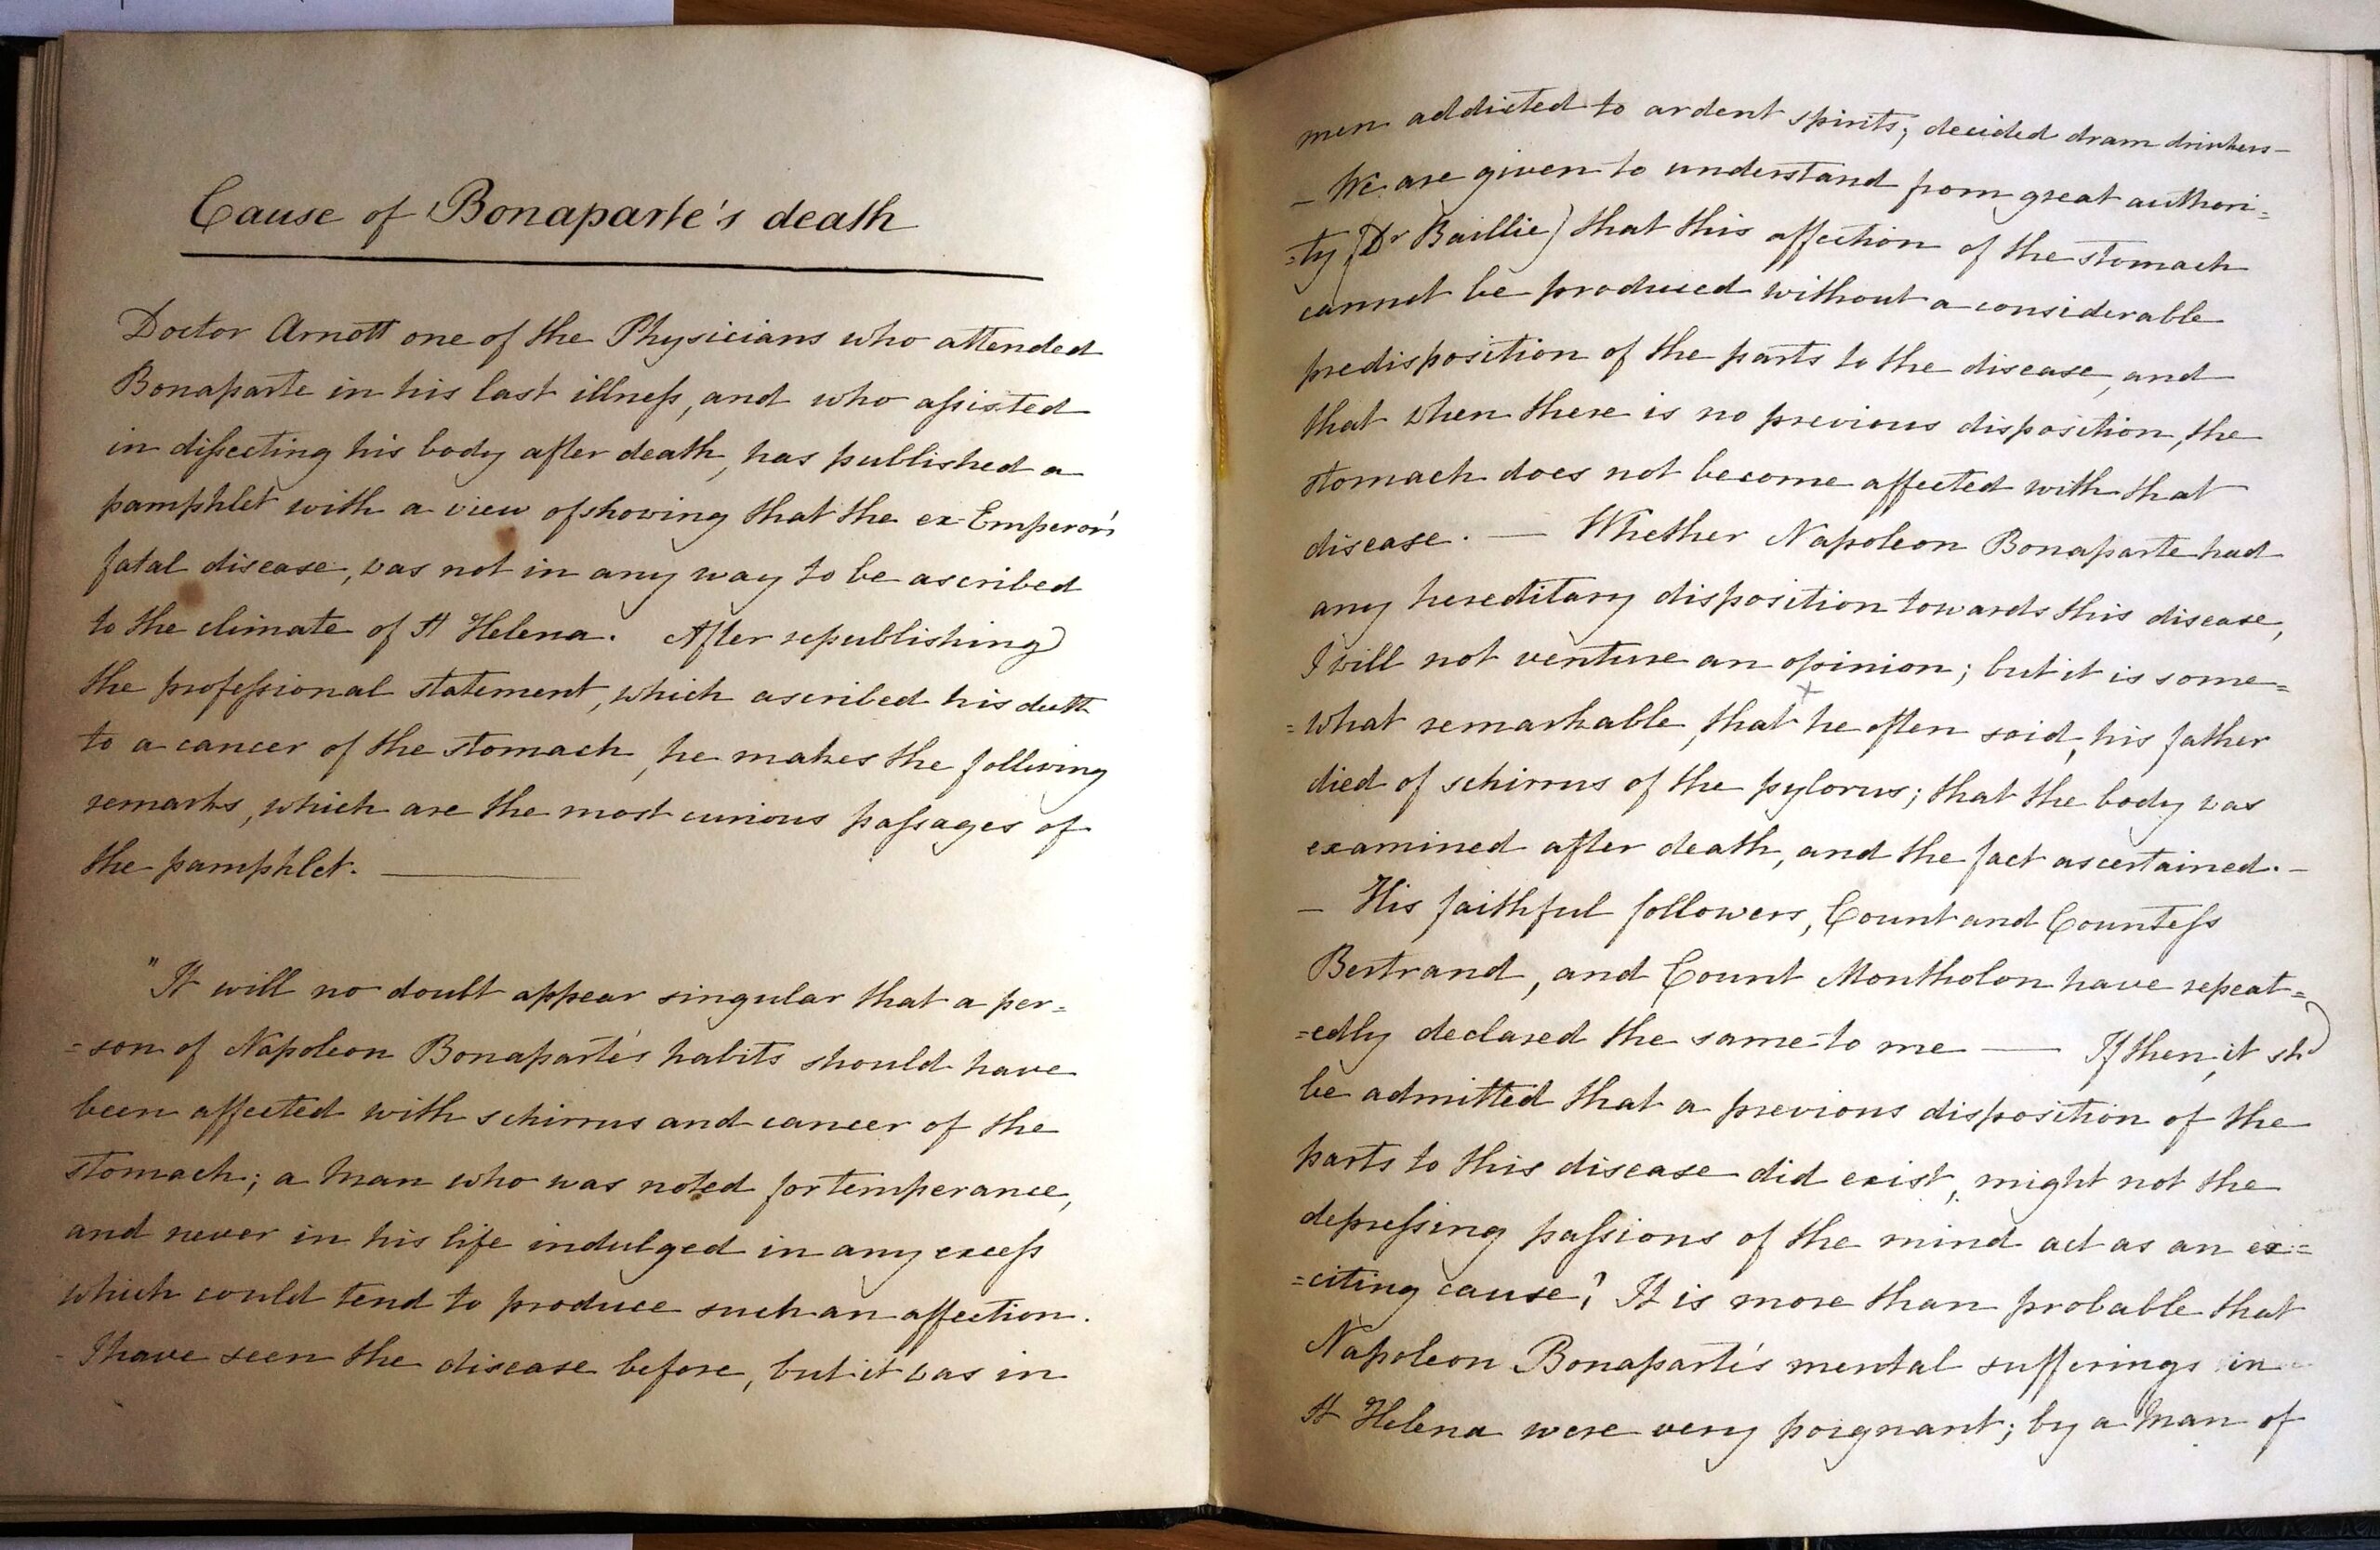 Cause of Bonaparte's death
Doctor Arnott one of the Physicians who attended
Bonaparte in his last illneſs, and who aſsisted
in diſsecting his body after death, has published a
pamphlet with a view of showing that the ex-Emperor's
fatal disease, was not in any way to be ascribed
to the climate of St Helena. After republishing
the profeſsional statement, which ascribed his death
to a cancer of the stomach, he makes the following
remarks, which are the most curious paſsages of
the pamphlet. ———
"It will no doubt appear singular that a per=
=son of Napoleon Bonaparte's habits should have
been affected with schirrus and cancer of the
stomach; a man who was noted for temperance,
and never in his life indulged in any exceſs
which could tend to produce such an affection.
- I have seen the disease before, but it was in
men addicted to ardent spirits; decided dram drinkers —
— We are given to understand from great authori=
=ty (Dr Baillie) that this affection of the stomach
cannot be produced without a considerable
predisposition of the parts to the disease, and
that when there is no previous disposition, the
stomach does not become affected with that
disease. — Whether Napoleon Bonaparte had
any hereditary disposition towards this disease,
I will not venture an opinion; but it is some=
=what remarkable, that he often said, his father
died of schirrus of the pylorus; that the body was
examined after death, and the fact ascertained. —
— His faithful followers, Count and Counteſs
Bertrand, and Count Montholon have repeat=
=edly declared the same to me — If then, it shd
be admitted that a previous disposition of the
parts to this disease did exist, might not the
depreſsing paſsions of the mind act as an ex=
=citing cause? It is more than probable that
Napoleon Bonaparte's mental sufferings in
St Helena were very poignant; by a man of